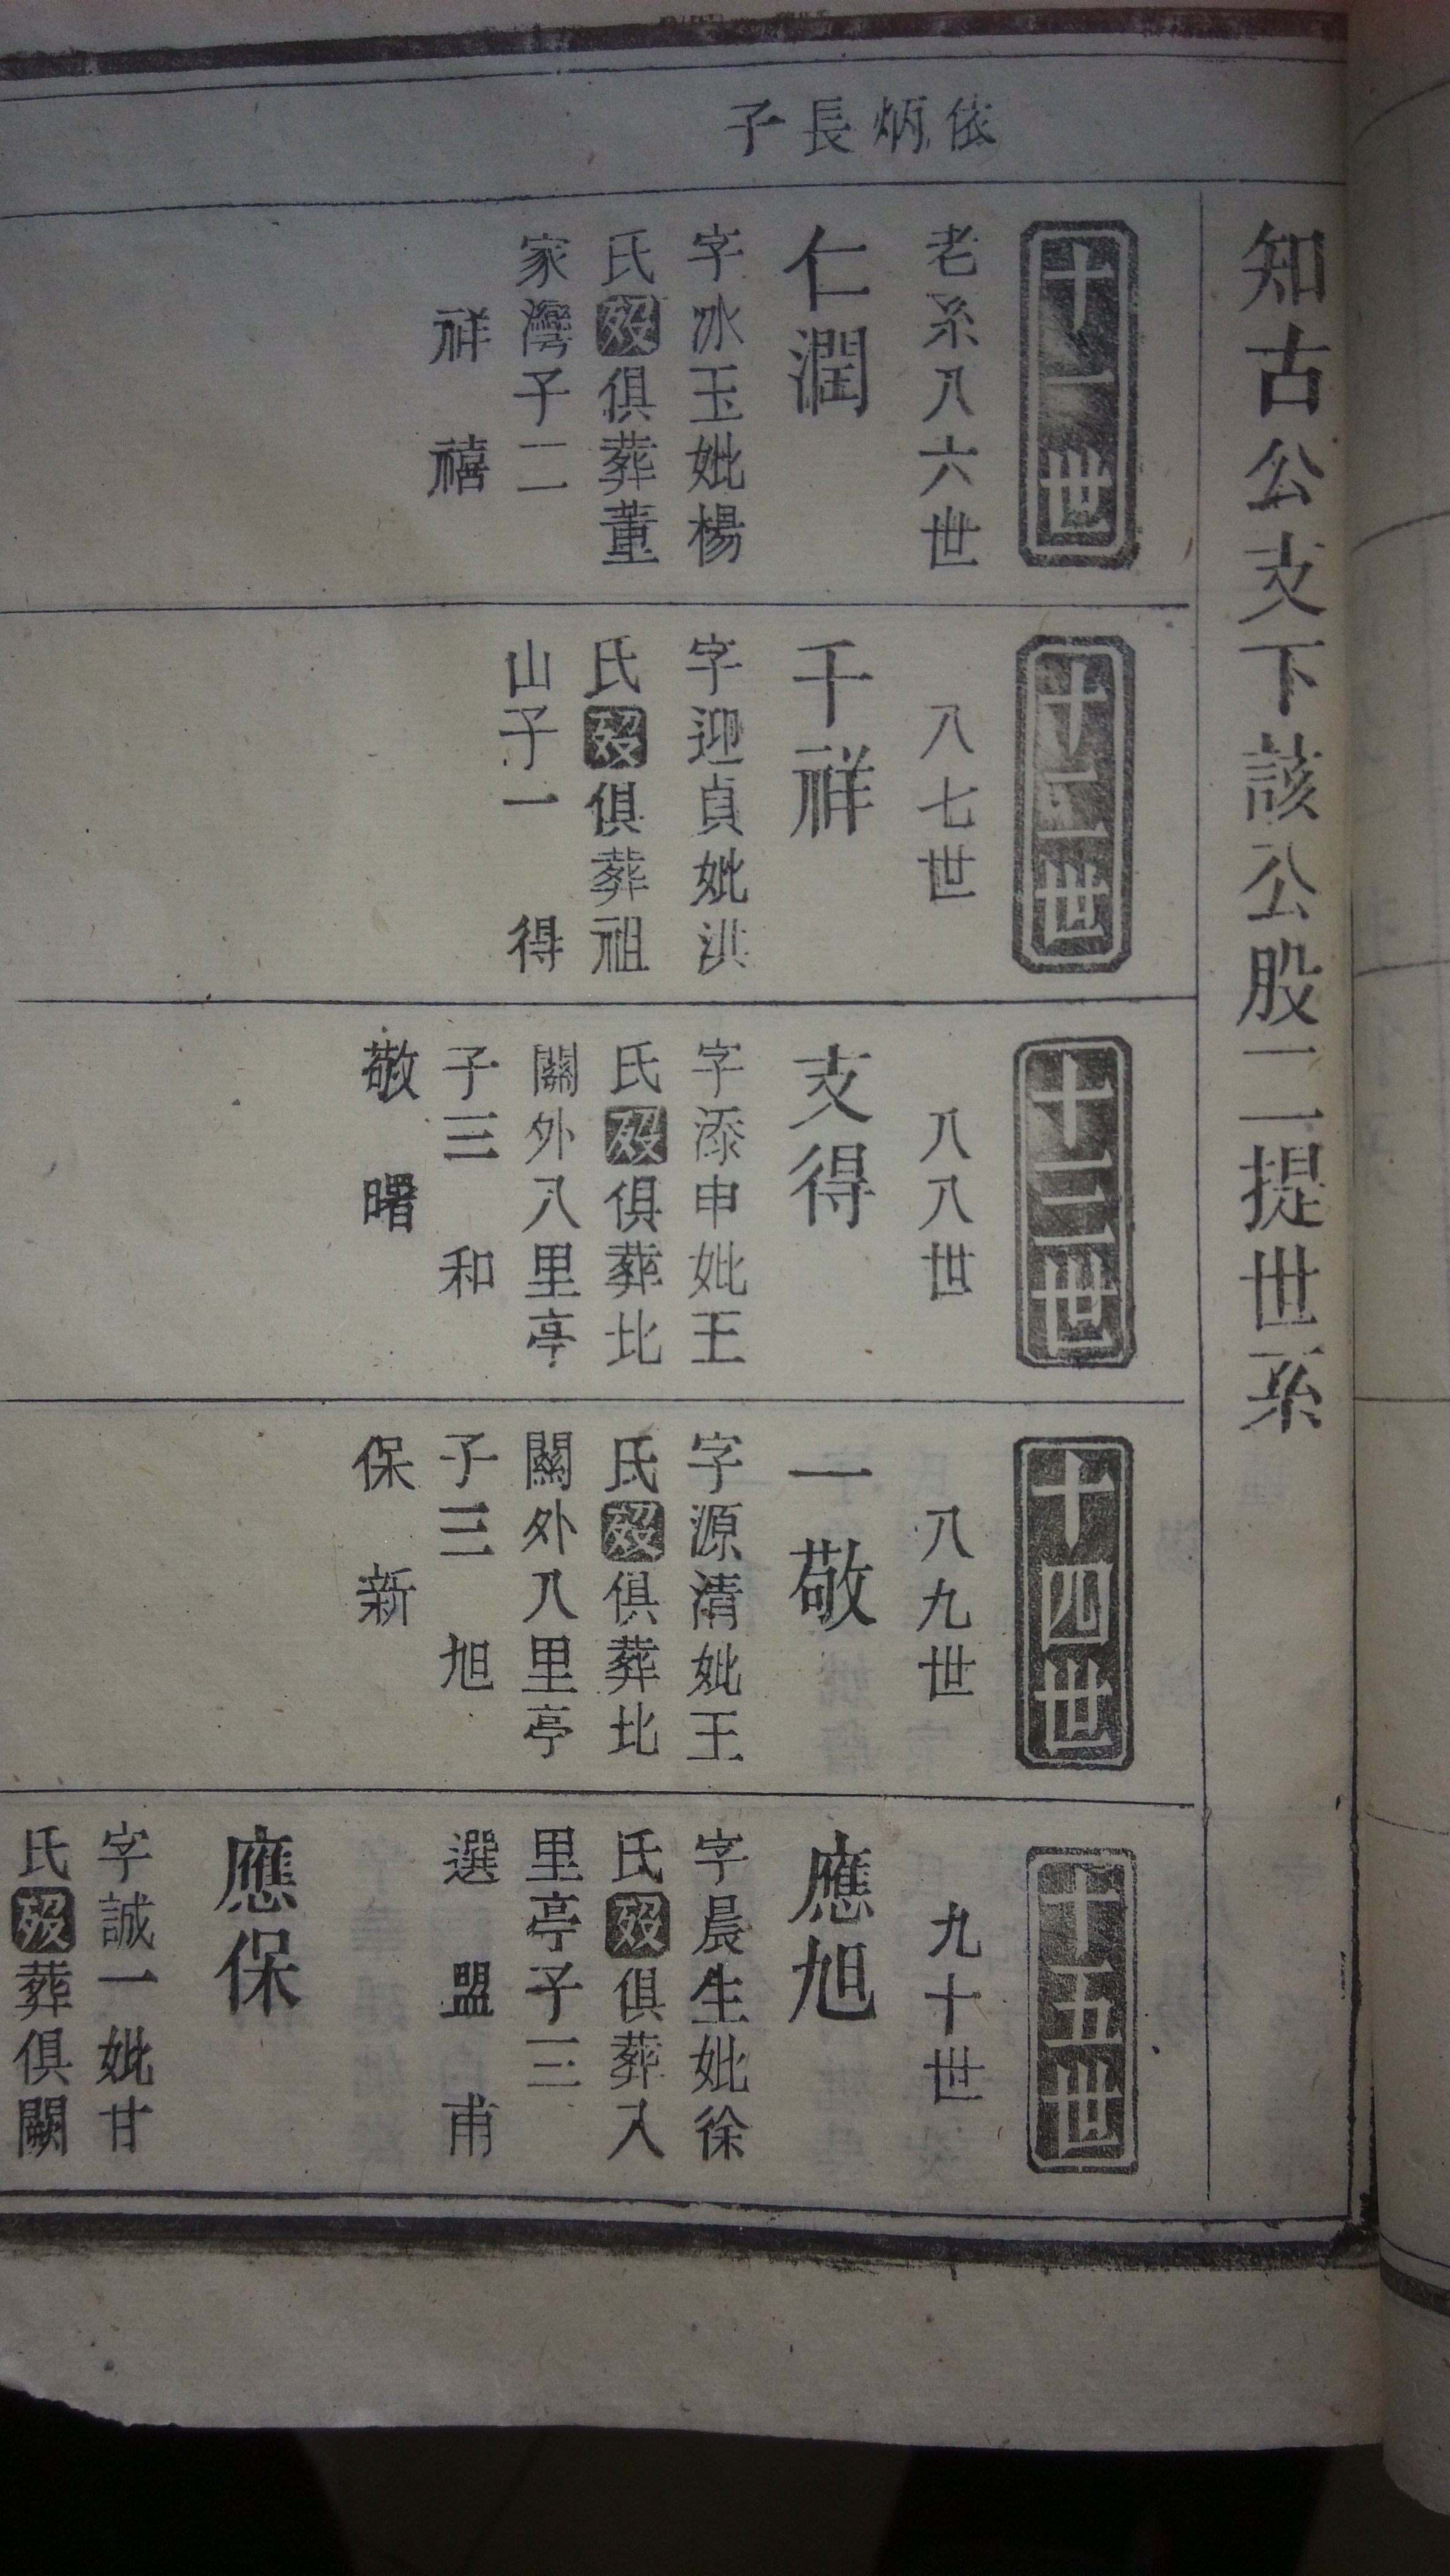 知古公支下該公股二提世系
依炳長子
十一世
老系八六世
仁潤
字冰玉妣楊
氏歿俱葬董
家灣子二
祥禧
十二世
八七世
千祥
字迎貞妣洪
氏歿俱葬祖
山子一 得
十三世
八八世
支得
字添申妣王
氏歿俱葬北
關外八里亭
子三 和
敬曙
十四世
八九世
一敬
字源清妣王
氏歿俱葬北
關外八里亭
子三 旭
保新
十五世
九十世
應旭
字晨生妣徐
氏歿俱葬八
里亭子三
選盟甫
應保
字誠一妣甘
氏歿葬俱闕